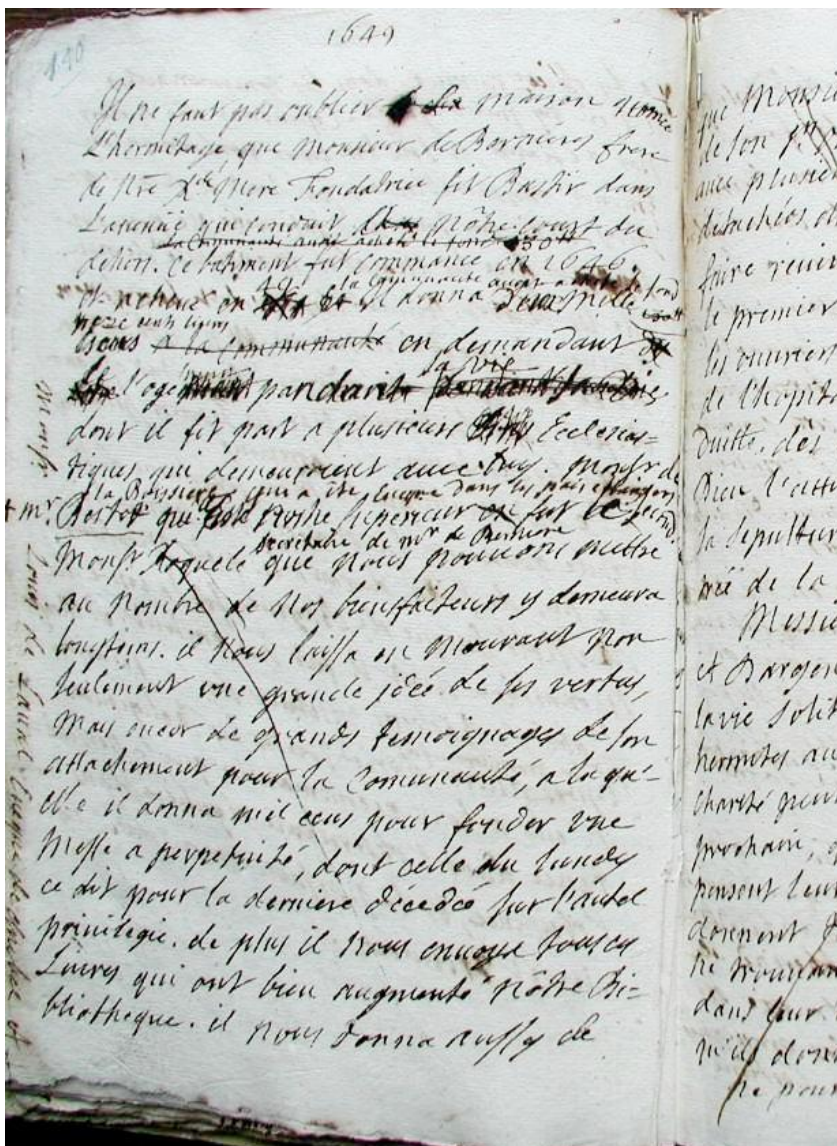 148
1649
Il ne faut pas oublier la maison nomée
L'hermitage, que Monsieur de Bernieres frere
de Nre Mere Fondatrice fit Bastir dans
L'avenuë qui conduit nôtre court du
la Communauté avoit acheté le fond 450tt
dehors. ce bâtiment fut commancé en 1646.
la Communauté avoit acheté le fond
et achevé en il donna deux mille
cents livres
escus a la Communauté en demandant
sa vie
le logement pandant pendant sa vie
dont il fit part a plusieurs Ecclesias=
tiques qui demeuroient avec luy. Monsr de
la Boissiere qui a été dans les païs etrangers
+ mr. Bertot qui notre superieur en fut le second.
secretaire de mr de Berniere
Monsr Roquele que nous pouvons mettre
au nombre de nos bienfaiteurs y demeura
longtems. il nous laissa en mourant non
seulement une grande idée de ses vertus,
Mais encor de grands temoignages de son
attachement pour la Comunauté, a laqu'-
elle il donna mil ecus pour fonder une
Messe a perpetuité, dont celle du lundy
ce dit pour la derniere décedée sur l'autel
privilegié. de plus il nous envoya tous ces
Livres qui ont bien augmenté nôtre Bi=
bliotheque. il nous donna aussy de
+ monsr. Louis de Laval Eveque de Quebec et
que Monsie
de son
avec plusieu
detachées
faire
le premier
les ouvriers
de l'hopit
Duitte. dès
Dieu l'atti
sa sepultur
de la
Messie
et Dargen
la vie solit
hermites au
Charité
prochain,
pensent leur
donnent
ne trouvan
dans leur
qu'ils don
ne pour